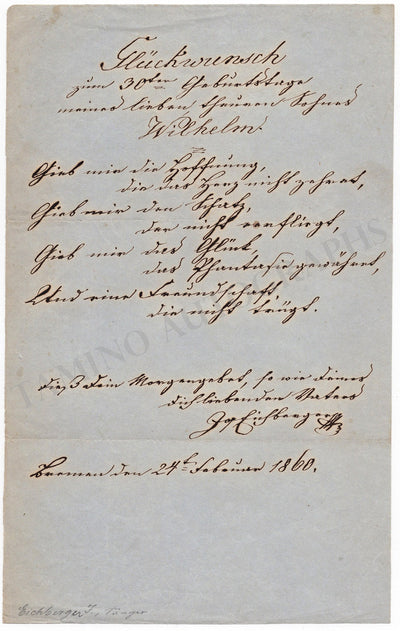 Glückwunsch
zum 30ten Geburtstage
meines lieben theuren Sohnes
Wilhelm.
Gieb mir die Hoffnung,
die das Herz nicht zehret,
Gieb mir den Schatz,
der nicht verfliegt,
Gieb mir das Glück,
das Phantasie gewähret,
Und eine Freundschaft,
die nicht trügt.
Dieß Dein Morgengebet, so wie Deines
Dich liebenden Vaters
Eichberger
Bremen den 24t Februar 1860.
Eichberger J., Sänger
TAMINO AUTOGRAPHS